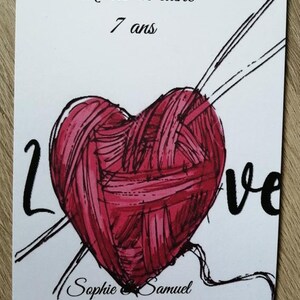 7 ans
L ve
Sophie & Samuel